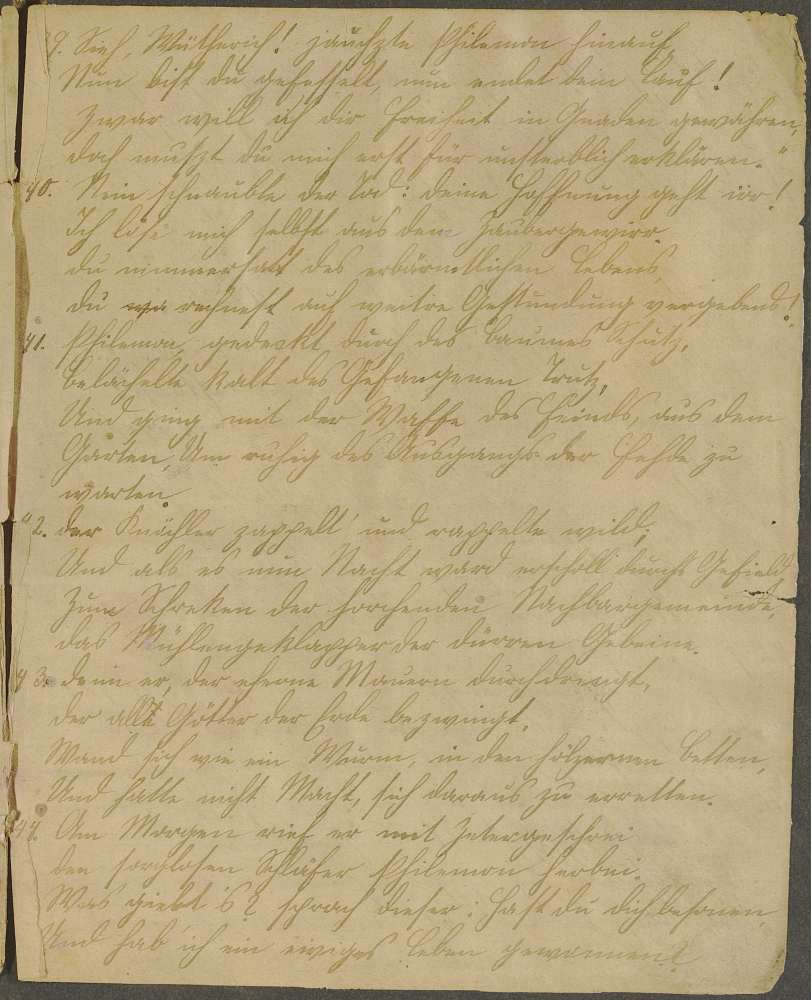 39. Sieh, Wütherich! jauchzte Philemon hinauf,
Nun bist du gefesselt, nun endet dein Lauf!
Zwar will ich dir Freiheit in Gnaden gewähren,
doch muſzt du mich erst für unsterblich erklären."
40. Nein schnaubte der Tod: deine Hoffnung geht irr!
Ich löse mich selbst aus dem Zaubergewirr.
du nimmersatt des erbärmtlichen Lebens,
du rechnest auf weitre Gestundung vergebens!
41. Philemon, gedeckt durch des Baumes Schutz,
belächelte kalt des Gefangenen Trutz,
Und ging mit der Waffe des Feinds, aus dem
Garten, Um ruhig des Ausgangs der Fehde zu
warten.
42. der Knöchler zappelt' und rappelte wild;
Und als es nun Nacht ward erscholl durchs Gefield
Zum Schreken der horchenden Nachbargemeinde,
das Mühlengeklapper der dürren Gebeine.
43. denn er, der eherne Mauern durchdringt,
der alle Götter der Erde bezwingt,
Wand sich wie ein Wurm, in den hölzernen Ketten,
Und hatte nicht Macht, sich daraus zu erretten.
44. Am Morgen rief er mit Zetergeschrei
den sorglosen Schläfer Philemon herbei.
Was giebt's? sprach dieser: hast du dich besonnen,
Und hab' ich ein ewiges Leben gewonnen?